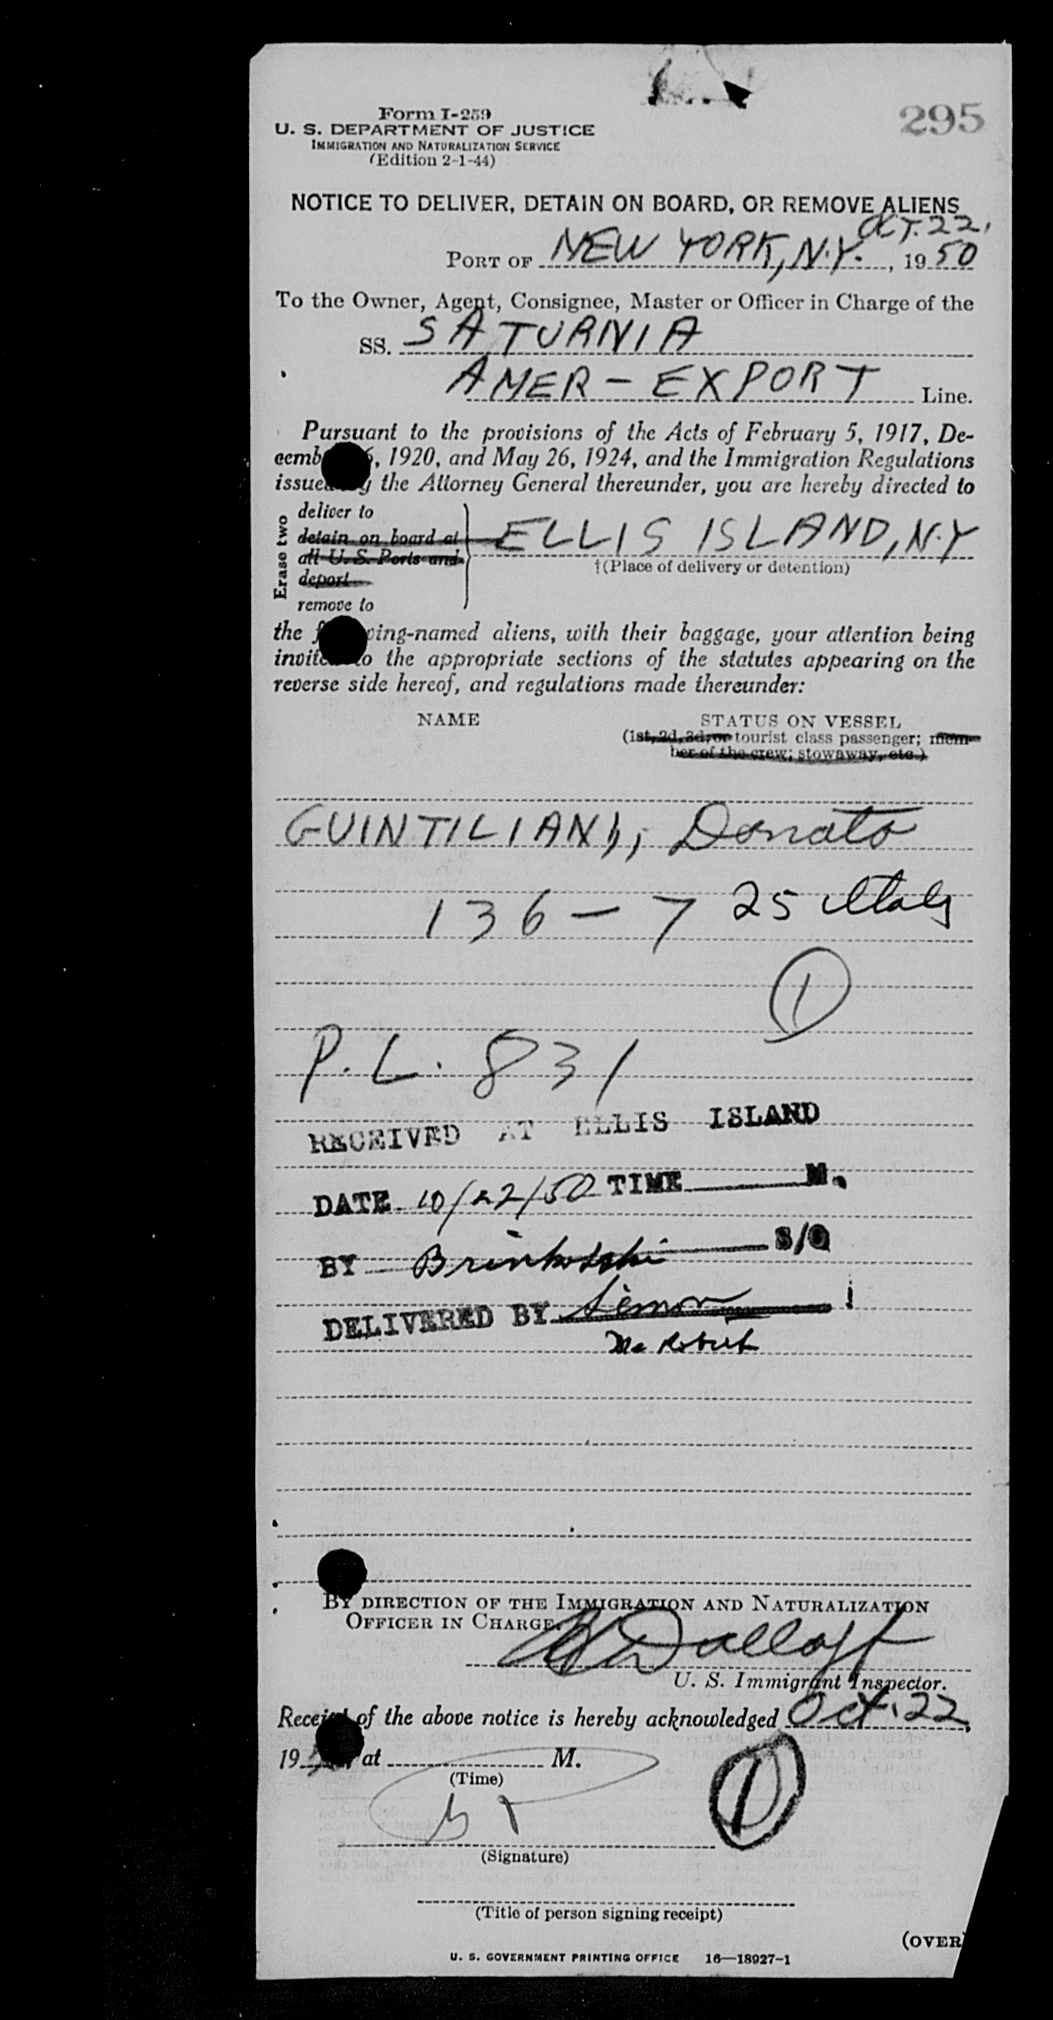 295
Form I-259
U. S. DEPARTMENT OF JUSTICE
IMMIGRATION AND NATURALIZATION SERVICE
(Edition 2-1-44)
NOTICE TO DELIVER, DETAIN ON BOARD, OR REMOVE ALIENS
OCT. 22,
PORT OF NEW YORK, N.Y. , 1950
To the Owner, Agent, Consignee, Master or Officer in Charge of the
SS. SATURNIA
AMER-EXPORT Line.
Pursuant to the provisions of the Acts of February 5, 1917, De-
cemb 6, 1920, and May 26, 1924, and the Immigration Regulations
issued by the Attorney General thereunder, you are hereby directed to
Erase two
deliver to
detain on board at ELLIS ISLAND, N.Y
all U. S. Ports and
†(Place of delivery or detention)
deport
remove to
the f wing-named aliens, with their baggage, your attention being
invited to the appropriate sections of the statutes appearing on the
reverse side hereof, and regulations made thereunder:
NAME STATUS ON VESSEL
(1st, 2d, 3d, or tourist class passenger; mem-
ber of the crew; stowaway, etc.)
GUINTILIANI, Donato
136-7 25 Italy
1
P.L. 831
RECEIVED AT ELLIS ISLAND
DATE 10/22/50 TIME M.
BY S/O
DELIVERED BY
BY DIRECTION OF THE IMMIGRATION AND NATURALIZATION
OFFICER IN CHARGE.
U. S. Immigrant Inspector.
Receipt of the above notice is hereby acknowledged Oct. 22,
19 at M.
(Time)
1
(Signature)
(Title of person signing receipt)
(OVER)
U. S. GOVERNMENT PRINTING OFFICE 16—18927-1